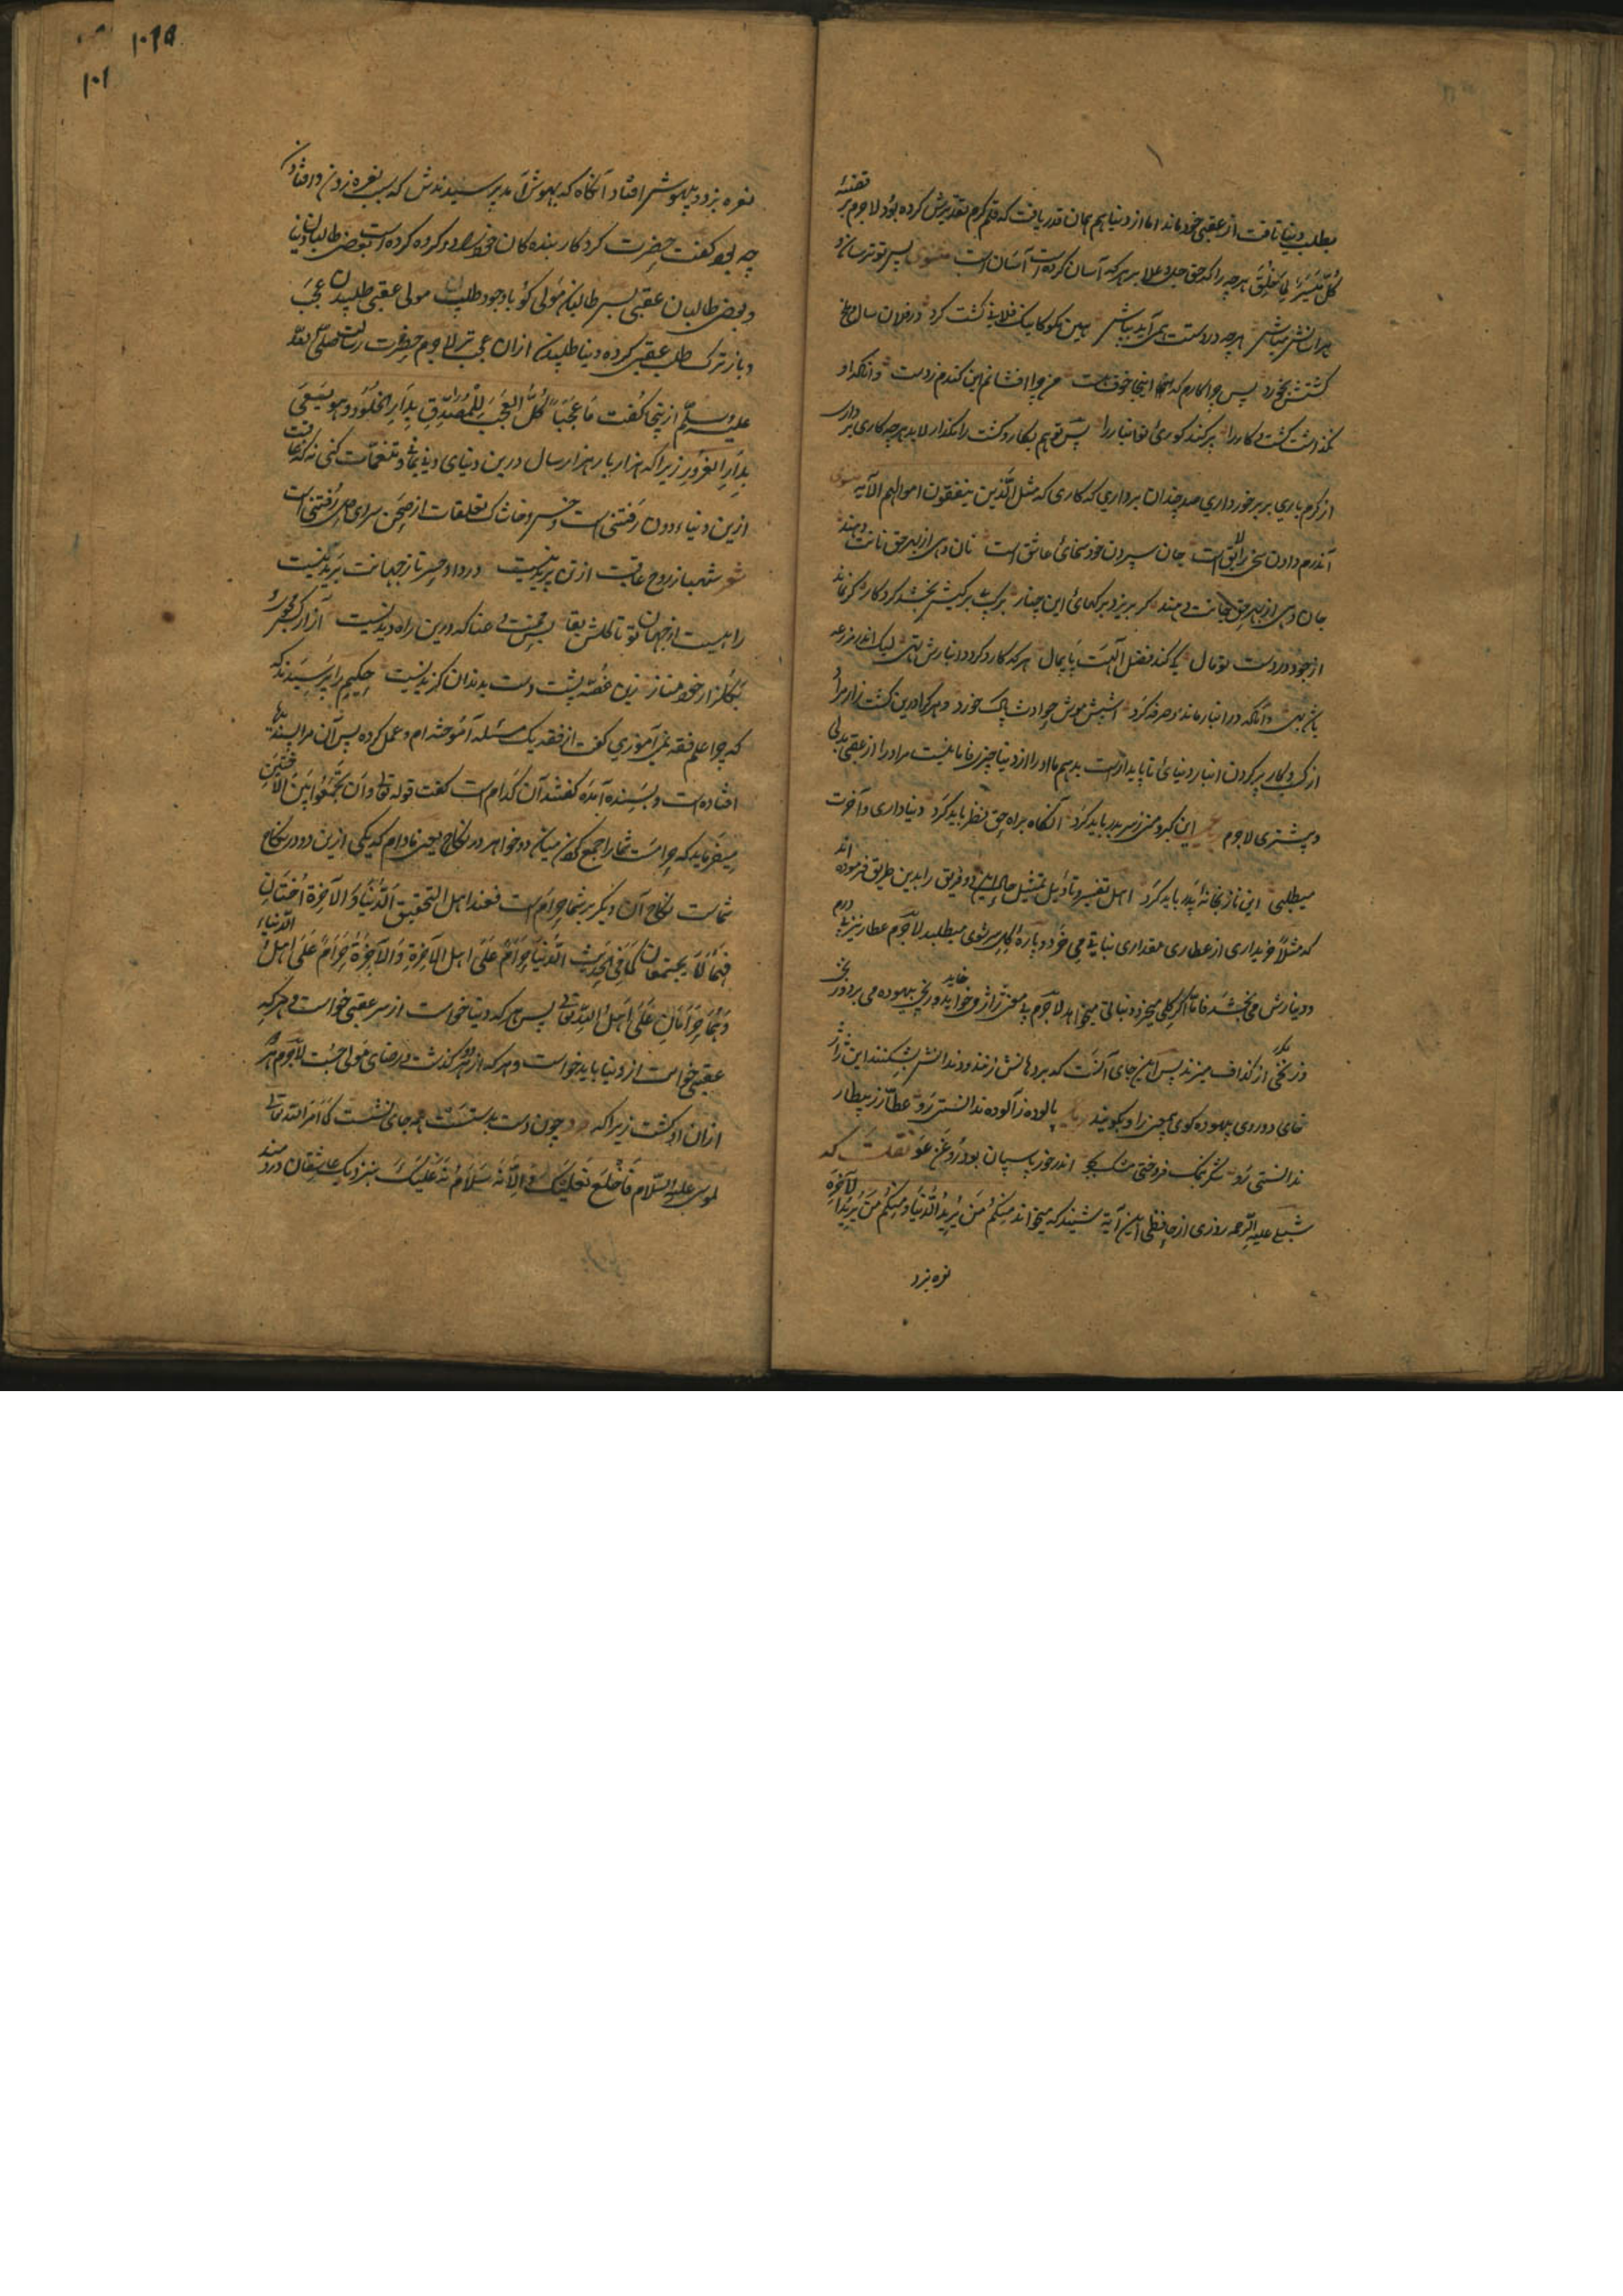 بطلب دنیا تافت از عقبی خود ماند اما از دنیا هم همان قدر یافت که قلم کرم تقدیرش کرده بود لاجرم بر قضیهٔ
کل میسر لما خلق هرچه را که حق جل و علا بر هر که آسان کرده است آسان است مثنوی پس تو ترسان و
هراسانش مباش هرچه در دستت همی آید بپاش بین نکو کاینک فلانی کشت کرد در فلان سال ملخ
کشتش بخورد پس چرا کارم که اینجا خوف هست من چرا افشانم این گندم ز دست وانکه او
نگذاشت کشت و کار را پر کند کوری تو انبار را پس تو هم بکار و کشت را مگذار لابد هرچه کاری بر داری
از کرم باری بر برخورداری صد چندان برداری که کاری که مثل الذین ینفقون اموالهم الآیه مثنوی
آن درم دادن سخی را لایق است جان سپردن خود سخای عاشق است نان دهی از بهر حق نانت دهند
جان دهی از بهر حق جانت دهند گر بریزد برگهای این چنار برگ بی برگیش بخشد کردگار گر نماند
از جود در دست تو مال کی کند فضل الهت پایمال هر که کارد گردد انبارش تهی لیک اندر مزرعه
باشد بهی وانکه در انبار ماند و صرفه کرد اشپش و موش حوادث پاک خورد و هر کرا درین کشت زار مراد
از کسب و کار پر کردن انبار دنیای ناپایدار است بدهیم ما او را از دنیا چیزی فاما نیست مر او را از عقبی بدلی
و بیشتری لاجرم این کبر و منی ز سر بدر باید کرد آنگاه براه حق نظر باید کرد دنیاداری و آخرت
میطلبی این ناز بخانهٔ پدر باید کرد اهل تفسیر و تأویل تمثیل حال این دو فریق را بدین طریق فرموده اند
که مثلاً خریداری از عطاری مقداری نباتی می خرد و پاره گل سرشوی میطلبد لاجرم عطار نیز بی درم
و دینارش می بخشد فاما اگر گلی میخرد و نباتی میخواهد لاجرم بی مغز ژاژ می خاید و رنجی بیهوده می برد و زنخ
و زنخی از گزاف میزند پس این جای آنست که بر دهانش زنند و دندانش بشکنند این ژاژ
خای دوروی بیهوده گوی همچنین را و بگویند پالوده ز آلوده ندانستی رو عطار ز بیطار
ندانستی رو شکر نمک فروختی مشک بجو اندر خور پاسپان بود روغن غو نقلست که
شبلی علیه الرحمه روزی از حافظی این آیة شنید که میخواند منکم من یرید الدنیا و منکم من یرید الآخرة
نعره بزد
۱۰۱
نعره بزد و بیهوش افتاد آنگاه که بهوش آمد پرسیدندش که سبب نعره زدن و افتادن
چه بود گفت حضرت کردگار بنده کان خود را دو گروه کرده است بعضی طالبان دنیا
و بعضی طالبان عقبی پس طالبان مولی کو باوجود طلب مولی عقبی طلبیدن عجب
و باز ترک طلب عقبی کرده دنیا طلبیدن ازان عجب تر لاجرم حضرت رسالت صلی الله
علیه وسلم ازینجا گفت ما عجبا کل العجب للمصدق بدار الخلود وهو یسعی
بدار الغرور زیرا که هزار بار هزار سال درین دنیای دنی تنعمات کنی نه که عاقبت
ازین دنیاء دون رفتنی است و خس و خاشاک تعلقات از صحن سرای دل رفتنی است
شعر شهباز روح عاقبت از تن پریدنیست درد او حسرتا ز جهانت بریدنیست
راهیست از جهان تو تا گلشن بقا بس محنت و عنا که درین راه دیدنیست
بگلزار خود مناز زین غصه پشت دست بدندان گزیدنیست حکیم را پرسیدند که
که چرا علم فقه نمی آموزی گفت از فقه یک مسئله آموخته ام و عمل کرده پس آن مرا پسندیده
افتاده است و بسنده آمده گفتند آن کدام است گفت قوله تعالی وان تجمعوا بین الاختین
میفرماید که حرامست شما را جمع کردن میان دو خواهر در نکاح یعنی مادام که یکی ازین دو در نکاح
شماست نکاح آن دیگر بر شما حرام است فعند اهل التحقیق الدنیا والآخرة اختان
فهما لا یجتمعان کما فی الحدیث الدنیا حرام علی اهل الآخرة والآخرة حرام علی اهل الدنیا
وهما حرامان علی اهل الله تعالی پس هر که دنیا خواست از سر عقبی خواست و هر که
عقبی خواست از دنیا باید خواست و هر که از هر دو گذشت و رضای مولی جست لاجرم هر دو
ازان او گشت زیرا که چون دست بدستت همه جای نشست کما امر الله تعالی
لموسی علیه السلام فاخلع نعلیک سلام الله علیک بنزدیک عاشقان دردمند